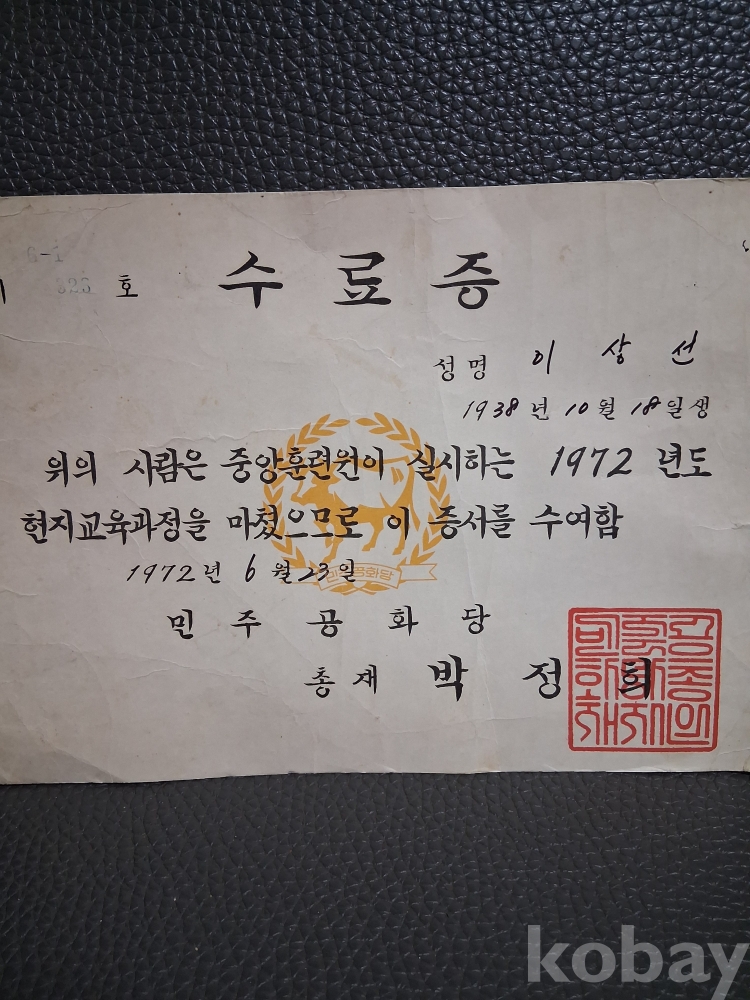 G-1
323 호 수료증
성명 이상선
1938년 10월 18일생
위의 사람은 중앙훈련원이 실시하는 1972 년도
현지교육과정을 마쳤으므로 이 증서를 수여함
1972년 6월 23일
민주공화당
민주공화당
총재 박정희
kobay